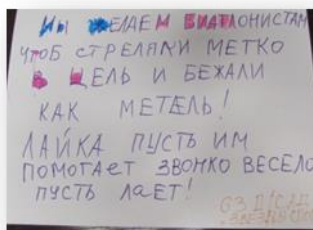 МЫ ЖЕЛАЕМ БИАТЛОНИСТАМ
ЧТОБ СТРЕЛЯЛИ МЕТКО
В ЦЕЛЬ И БЕЖАЛИ
КАК МЕТЕЛЬ!
ЛАЙКА ПУСТЬ ИМ
ПОМОГАЕТ ЗВОНКО ВЕСЕЛО
ПУСТЬ ЛАЕТ!
63 Д/САД